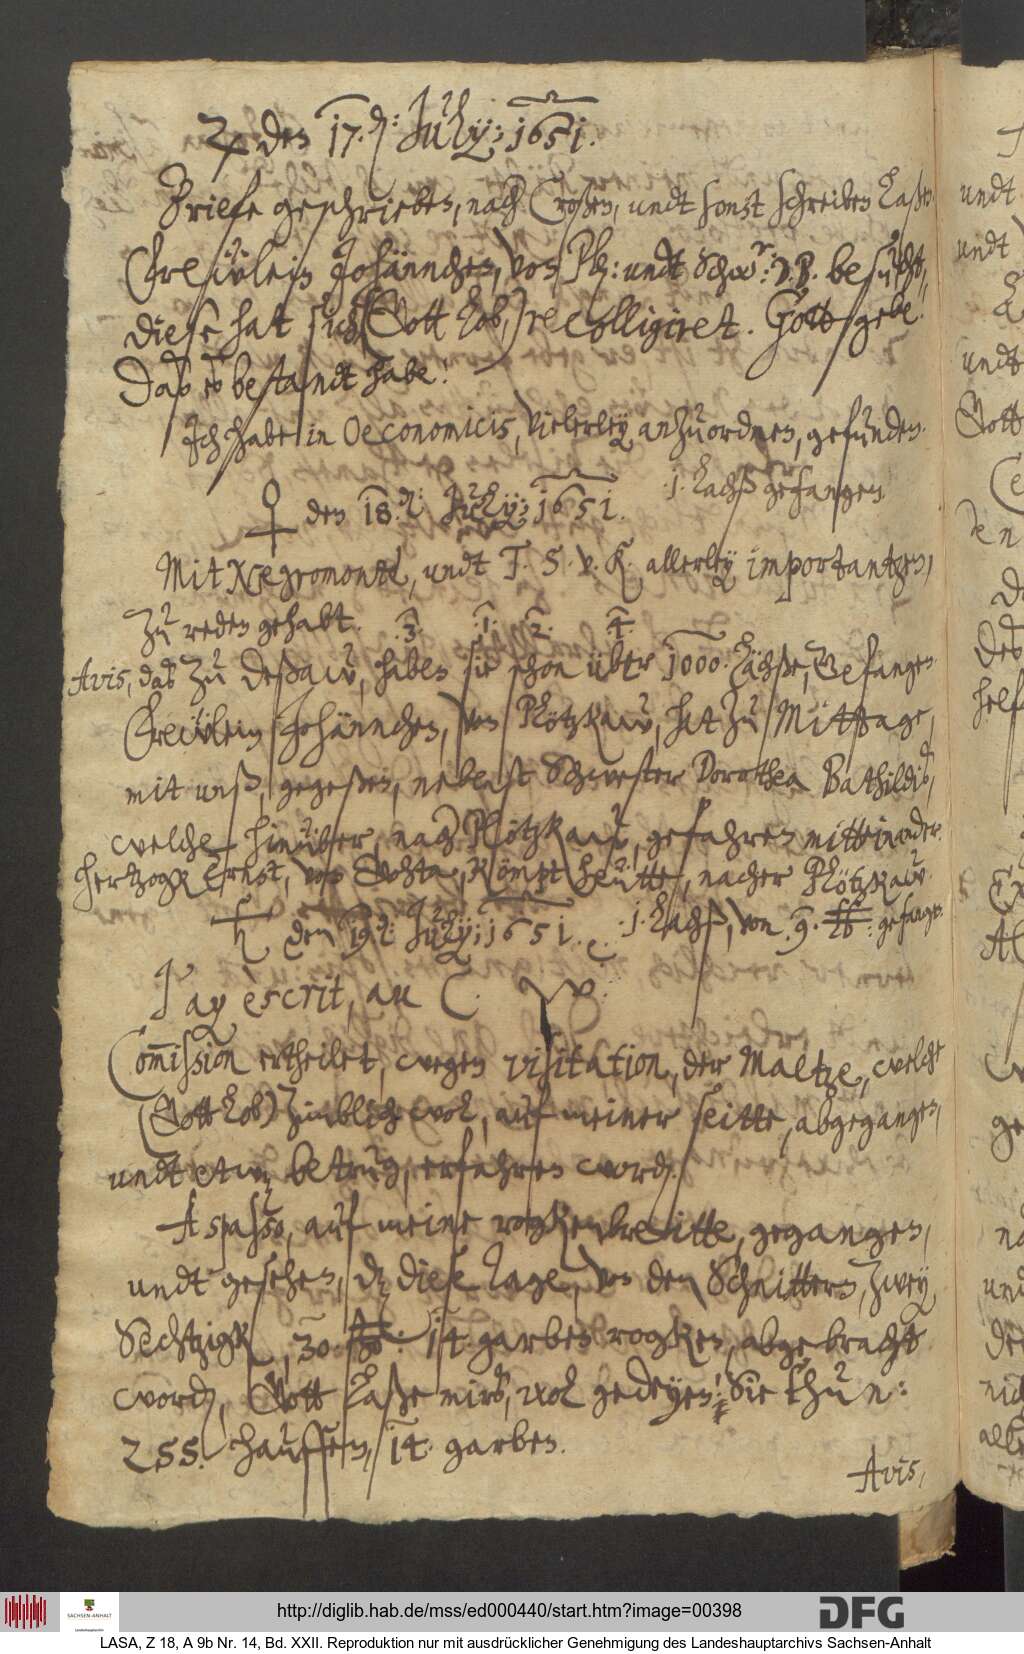 ♃ den 17. July; 1651.
Briefe geschrieben, nach Croßen, undt sonst schreiben laßen.
Freẅlein Johännchen, von Pl: undt Schw.r: D. B. besucht,
diese hat sich (Gott lob,) recolligiret. Gott gebe!
Daß es bestandt habe!
Ich habe in Oeconomicis, vielerley anzuordnen, gefunden.
♀ den 18. July; 1651.
.1. Lachß gefangen
Mit Negromonte, undt T. S. v. K. allerley importantzen,
zu reden gehabt.
.3. .1. .2. .4.
Avis, das zu Deßaw, haben sie schon über 1000. Lächße, gefangen.
Freẅlein Johännchen, von Plötzkaw, hat zu Mittage,
mit unß, gegeßen, nebenst Schwester Dorothea Bathildis,
welche hinüber, nach Plötzkaw, gefahren mitteinander.
Hertzogk Ernst, von Gohta, kömpt heütte, nacher Plötzkaw.
♄ den 19. July; 1651.
.1. Lachß, von .9. ℔: gefangen.
J'ay escrit, au C.
Commission ertheilet, wegen visitation, der Maltze, welche
(Gott lob) zimblich wol, auf meiner seitte, abgegangen,
undt etwaß betrug, erfahren worden.
A spasso, auf meine rogken breitte, gegangen,
undt gesehen, daß diese Tage, von den Schnittern, zwey
Sechtzigk, 30 ßo: 14 garben rogken, abgebracht
worden, Gott laße mirs, wol gedeyen! Sie thun:
255. hauffen, 14. garben.
Avis,
http://diglib.hab.de/mss/ed000440/start.htm?image=00398
DFG
SACHSEN-ANHALT
LASA, Z 18, A 9b Nr. 14, Bd. XXII. Reproduktion nur mit ausdrücklicher Genehmigung des Landeshauptarchivs Sachsen-Anhalt